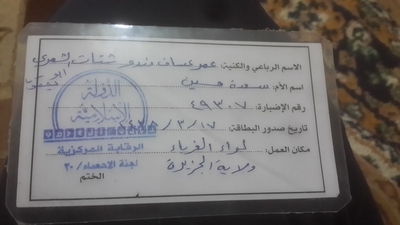 الاسم الرباعي والكنية: عمر عساف مندو شتات الشمري
ابو
اسم الأم: سعدة حسين
رقم الإضبارة: ٤٩٣٠٧
تاريخ صدور البطاقة: ١٧/٣/
مكان العمل: لواء الغرباء
ولاية الجزيرة
الدولة
الإسلامية
الرقابة المركزية
لجنة الاحصاء/٢٠
الختم